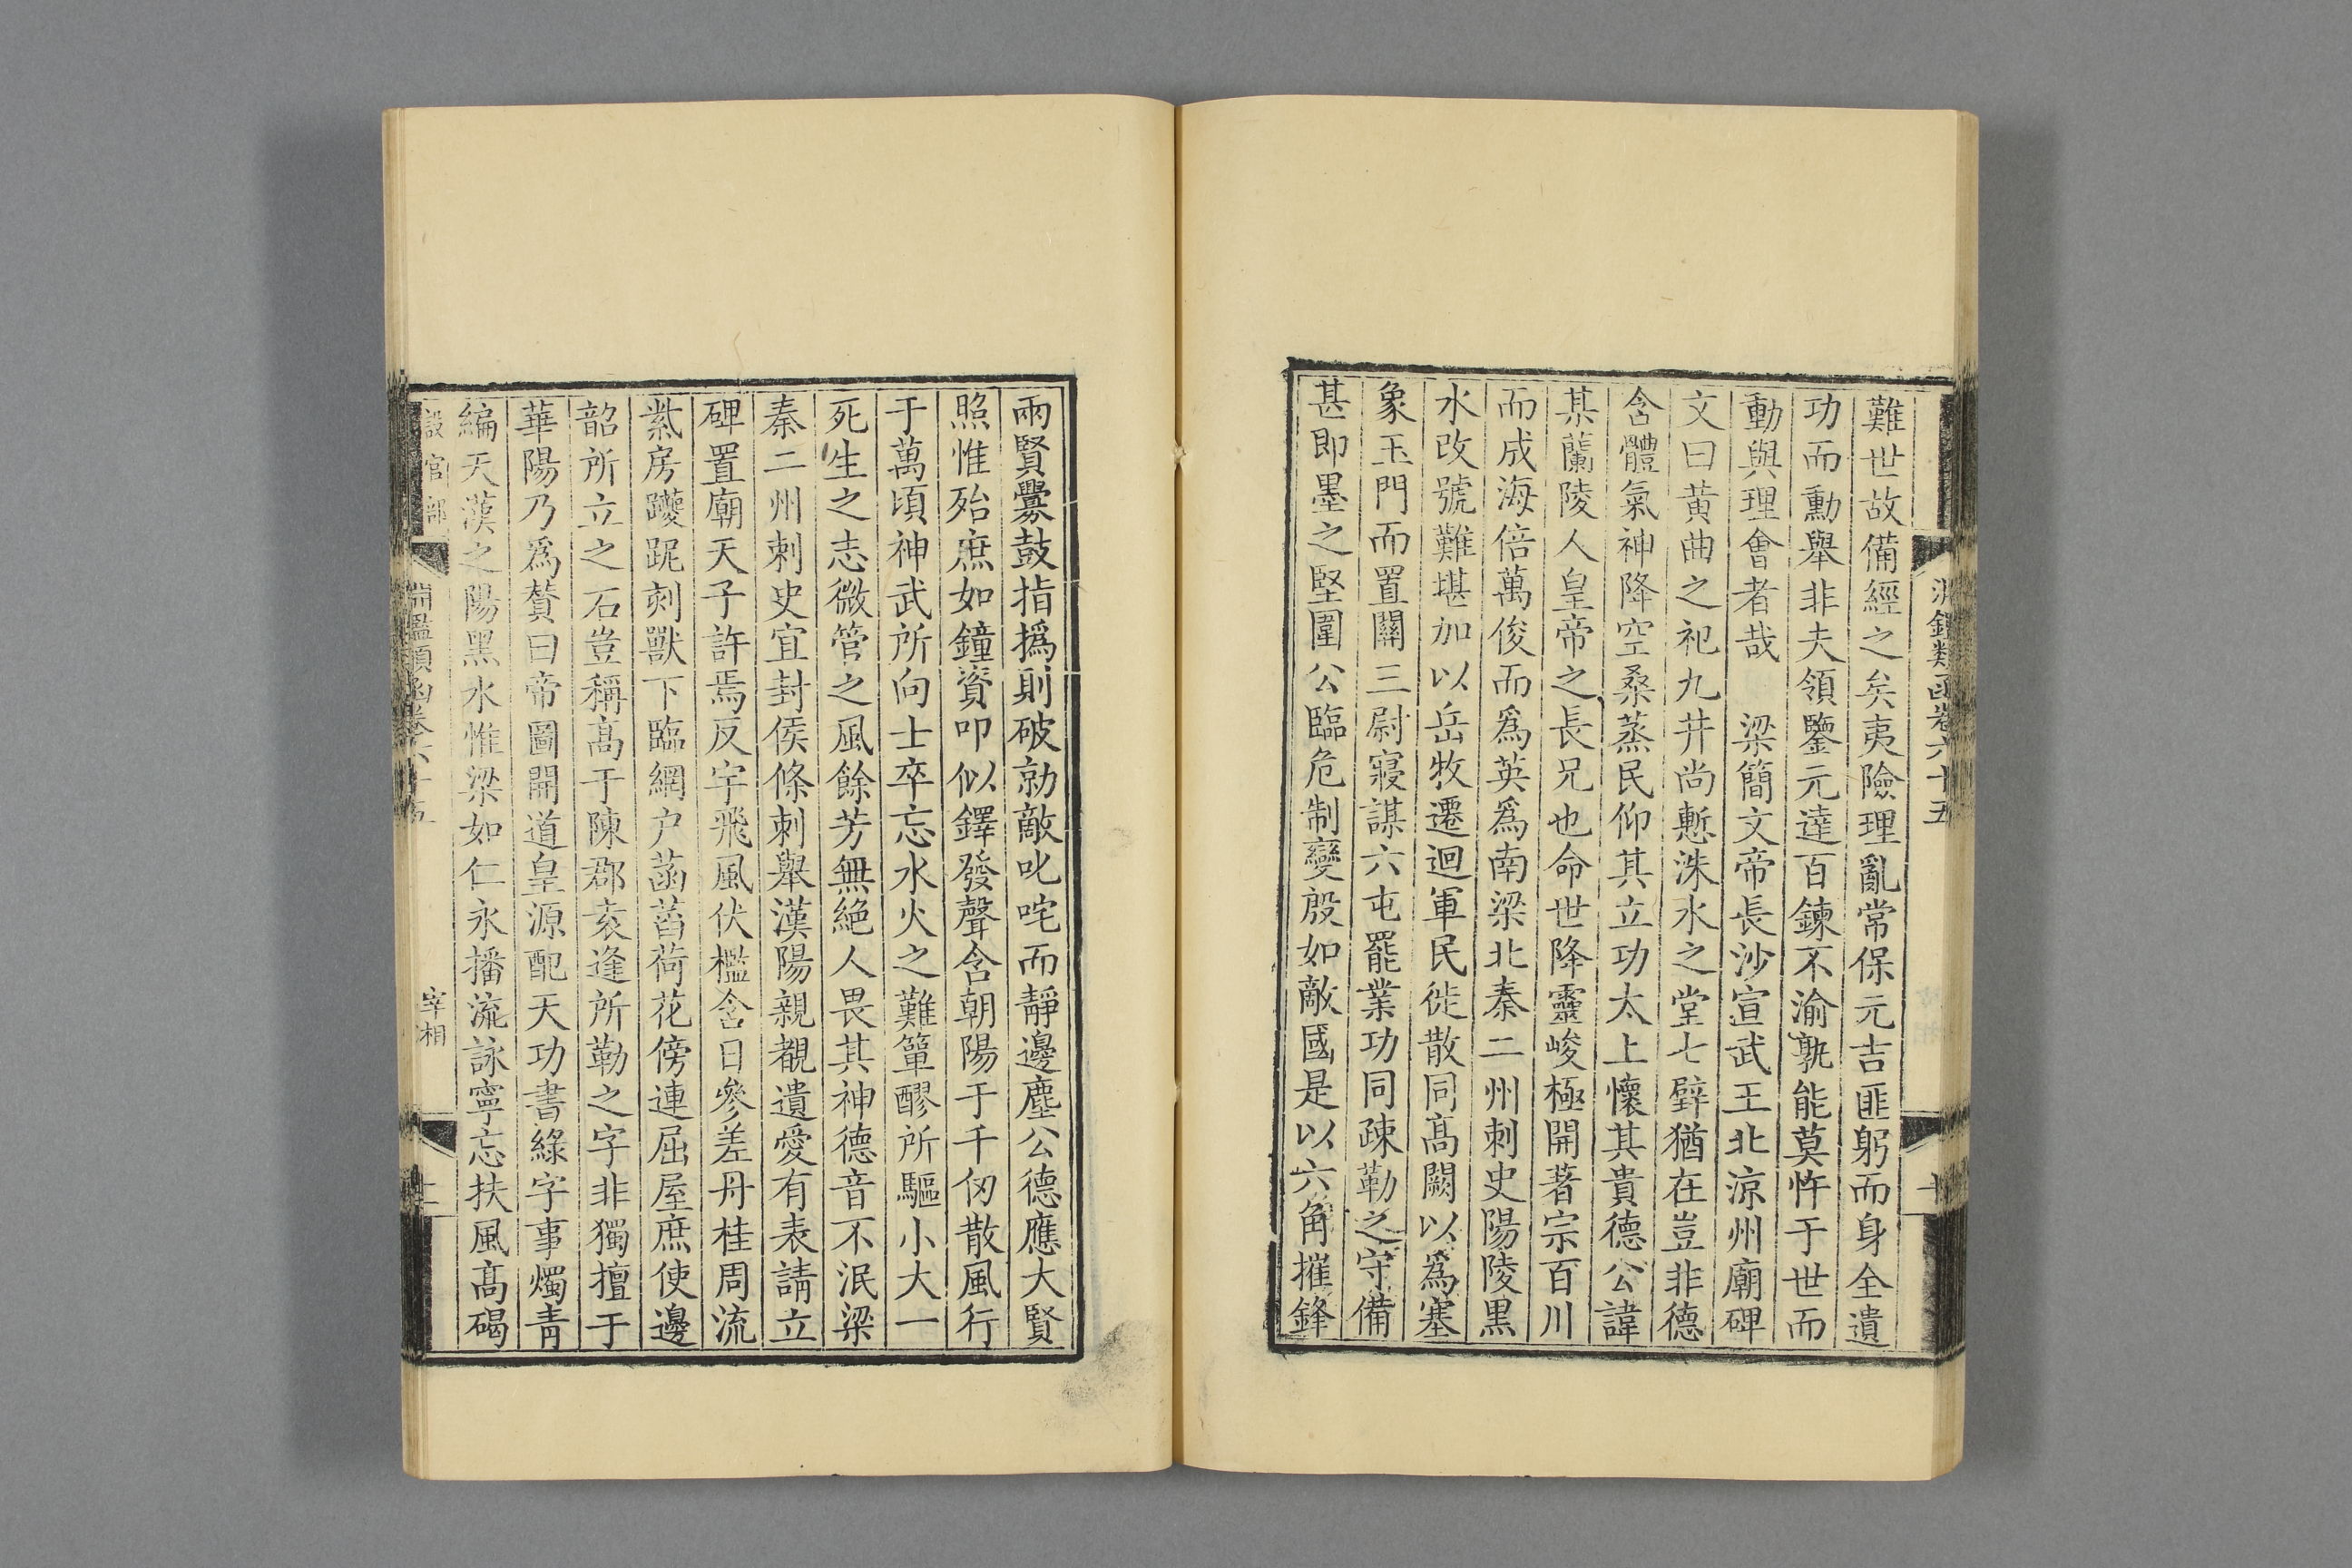 淵鑑類函卷六十五
難世故備經之矣夷險理亂常保元吉匪躬而身全遺
功而勳舉非夫領鑒元達百鍊不渝孰能莫忤于世而
動與理會者哉　梁簡文帝長沙宣武王北涼州廟碑
文曰黃曲之祀九井尚慙洙水之堂七壁猶在豈非德
含體氣神降空桑蒸民仰其立功太上懷其貴德公諱
某蘭陵人皇帝之長兄也命世降靈峻極開著宗百川
而成海倍萬俊而爲英爲南梁北秦二州刺史陽陵黑
水改號難堪加以岳牧遷迴軍民徙散同髙闕以爲塞
象玉門而置關三尉寢謀六屯罷業功同疎勒之守備
甚即墨之堅圍公臨危制變殷如敵國是以六角摧鋒
兩賢釁鼓指撝則破勍敵叱咤而靜邊塵公德應大賢
照惟殆庶如鐘資叩似鐸發聲含朝陽于千仞散風行
于萬頃神武所向士卒忘水火之難簞醪所驅小大一
死生之志微管之風餘芳無絕人畏其神德音不泯梁
秦二州刺史宜封侯條刺舉漢陽親覩遺愛有表請立
碑置廟天子許焉反宇飛風伏檻含日參差丹桂周流
紫房躨跜刻獸下臨網户菡萏荷花傍連屈屋庶使邊
韶所立之石豈稱髙于陳郡袁逢所勒之字非獨擅于
華陽乃爲贊曰帝圖開道皇源配天功書綠字事燭靑
編天漢之陽黑水惟梁如仁永播流詠寧忘扶風髙碣
設官部
淵鑑類函卷六十五
宰相